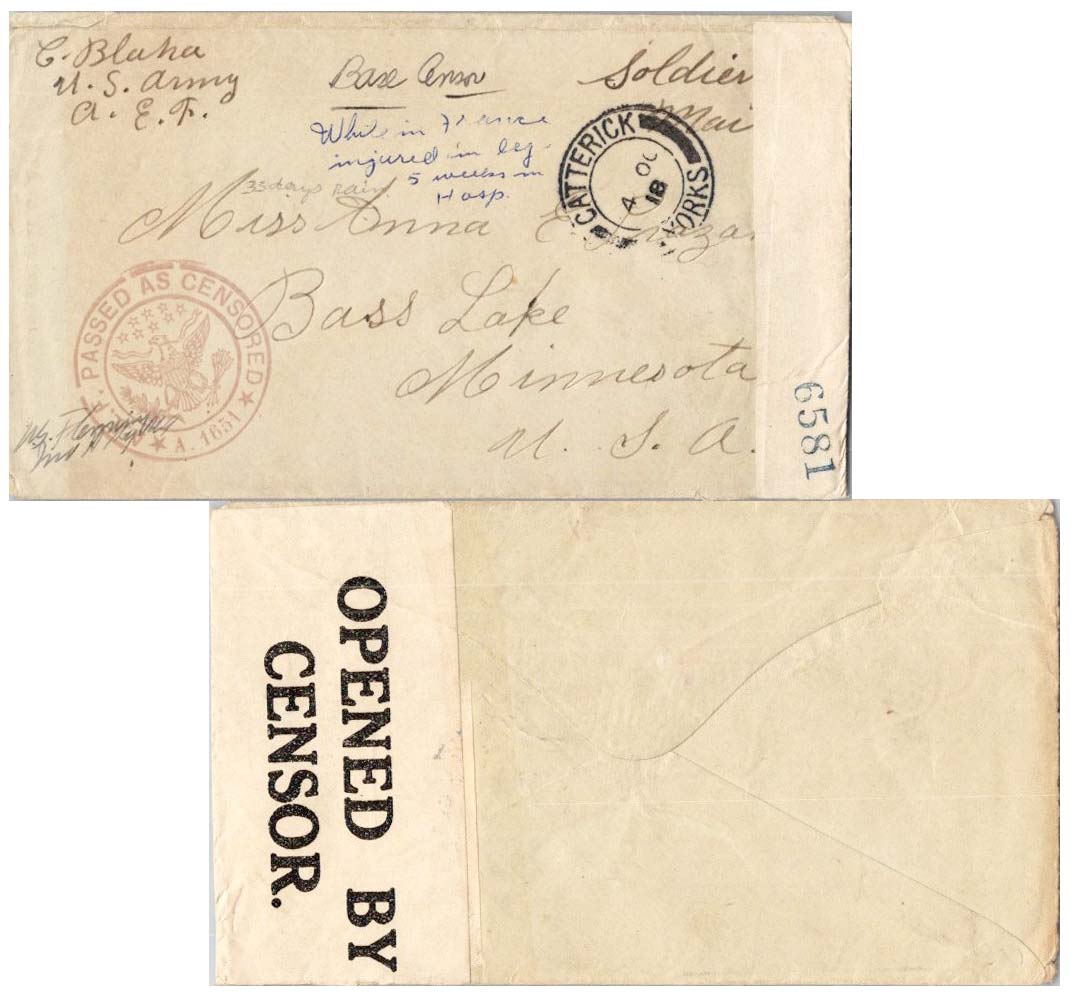 C. Blaha
U. S. Army
A. E. F.
Base Censor
Soldier
Mai
While in France
injured in leg -
5 weeks in
Hosp.
33 days rain
CATTERICK
YORKS
4 OC
18
Miss Anna E.
Bass Lake
Minnesota
U. S. A.
PASSED AS CENSORED
A. 1651
6581
OPENED BY
CENSOR.